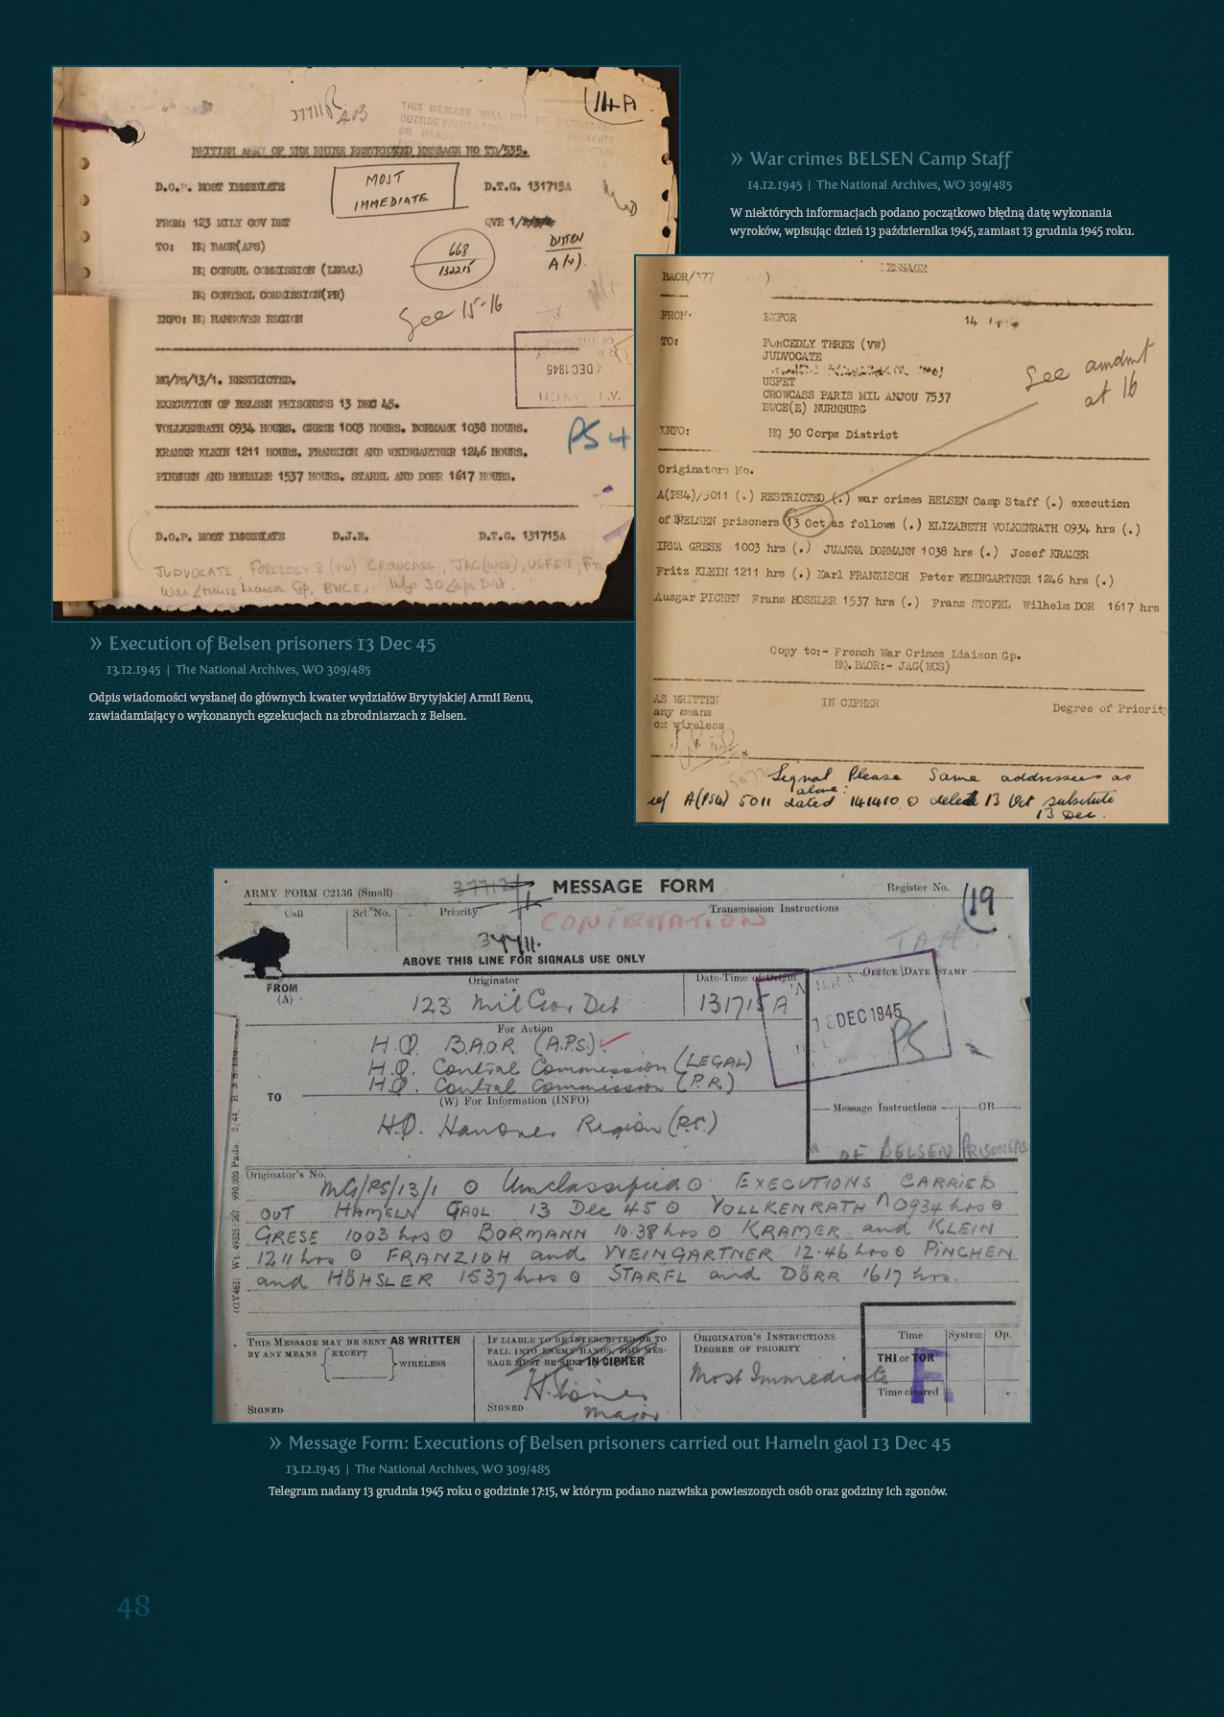 37711
(14A
THIS MESSAGE WILL NOT BE DISTRIBUTED
OUTSIDE BRITISH
OR HEAD
BRITISH ARMY OF THE RHINE RESTRICTED MESSAGE NO TD/535.
D.O.P. MOST IMMEDIATE
MOST
IMMEDIATE
D.T.G. 131715A
FROM: 123 MILY GOV DET
QVR 1/
TO: HQ BAOR(APS)
668
132215
DISTEN
HQ CONSUL COMMISSION (LEGAL)
HQ CONTROL COMMISSION(PR)
See 15-16
INFO: HQ HANNOVER REGION
DEC 1945
MG/PS/13/1. RESTRICTED.
EXECUTION OF BELSEN PRISONERS 13 DEC 45.
VOLLKENRATH 0934 HOURS. GRESE 1003 HOURS. BORMANN 1038 HOURS.
PS 4
KRAMER KLEIN 1211 HOURS. FRANZICH AND WEINGARTNER 1246 HOURS.
PINCHEN AND HOHSLER 1537 HOURS. STAREL AND DORR 1617 HOURS.
D.O.P. MOST IMMEDIATE D.J.E. D.T.G. 131715A
JUDVOCATE, FORCEDLY 3 (VW) CROWCASS, JAG(WCS), USFET,
War Crimes Liaison Gp, BWCE, Info 30 Corps Dist.
» Execution of Belsen prisoners 13 Dec 45
13.12.1945 | The National Archives, WO 309/485
Odpis wiadomości wysłanej do głównych kwater wydziałów Brytyjskiej Armii Renu,
zawiadamiający o wykonanych egzekucjach na zbrodniarzach z Belsen.
» War crimes BELSEN Camp Staff
14.12.1945 | The National Archives, WO 309/485
W niektórych informacjach podano początkowo błędną datę wykonania
wyroków, wpisując dzień 13 października 1945, zamiast 13 grudnia 1945 roku.
MESSAGE
BAOR/177 )
FROM: EXFOR 14
TO: FORCEDLY THREE (VW)
JUDVOCATE
USFET
CROWCASS PARIS MIL ANJOU 7537
BWCE(E) NURNBURG
See amdmt
at 16
INFO: HQ 30 Corps District
Originators No.
A(PS4)/5011 (.) RESTRICTED (.) war crimes BELSEN Camp Staff (.) execution
of BELSEN prisoners 13 Oct as follows (.) ELIZABETH VOLKENRATH 0934 hrs (.)
IRMA GRESE 1003 hrs (.) JUANNA BORMANN 1038 hrs (.) Josef KRAMER
Fritz KLEIN 1211 hrs (.) Karl FRANZISCH Peter WEINGARTNER 1246 hrs (.)
Ansgar PICHEN Franz HOSSLER 1537 hrs (.) Franz STOFEL Wilhelm DOR 1617 hrs
Copy to:- French War Crimes Liaison Gp.
HQ.BAOR:- JAG(WCS)
AS WRITTEN IN CIPHER Degree of Priorit
any means
ex wireless
Signal Please Same addressees as
above:
ref A(PS4) 5011 dated 141410 ⊙ delete 13 Oct substitute
13 Dec.
ARMY FORM C2136 (Small)
MESSAGE FORM
Register No.
(19
Call Srl No. Priority Transmission Instructions
CONFIRMATION
37711.
ABOVE THIS LINE FOR SIGNALS USE ONLY
FROM
(A)
Originator
123 Mil Gov Det
Date-Time of Origin
131715A
OFFICE DATE STAMP
DEC 1945
PS
For Action
H.Q. B.A.O.R (A.P.S.)
H.Q. Control Commission (LEGAL)
TO
H.Q. Control Commission (P.R.)
(W) For Information (INFO)
H.Q. Hanover Region (P.S.)
Message Instructions GR
OF BELSEN PRISONERS
Originator's No.
MG/PS/13/1 ⊙ Unclassified ⊙ EXECUTIONS CARRIED
OUT HAMELN GAOL 13 Dec 45 ⊙ VOLLKENRATH 0934 hrs ⊙
GRESE 1003 hrs ⊙ BORMANN 10.38 hrs ⊙ KRAMER and KLEIN
1211 hrs ⊙ FRANZIOH and WEINGARTNER 12.46 hrs ⊙ PINCHEN
and HÖHSLER 1537 hrs ⊙ STARFL and DÖRR 1617 hrs.
THIS MESSAGE MAY BE SENT AS WRITTEN
BY ANY MEANS EXCEPT WIRELESS
SIGNED
IF LIABLE TO BE INTERCEPTED OR TO
FALL INTO ENEMY HANDS, THIS MES-
SAGE MUST BE SENT IN CIPHER
SIGNED
Major
ORIGINATOR'S INSTRUCTIONS
DEGREE OF PRIORITY
Most Immediate
Time System Op.
THI or TOR
Time cleared
» Message Form: Executions of Belsen prisoners carried out Hameln gaol 13 Dec 45
13.12.1945 | The National Archives, WO 309/485
Telegram nadany 13 grudnia 1945 roku o godzinie 17:15, w którym podano nazwiska powieszonych osób oraz godziny ich zgonów.
48